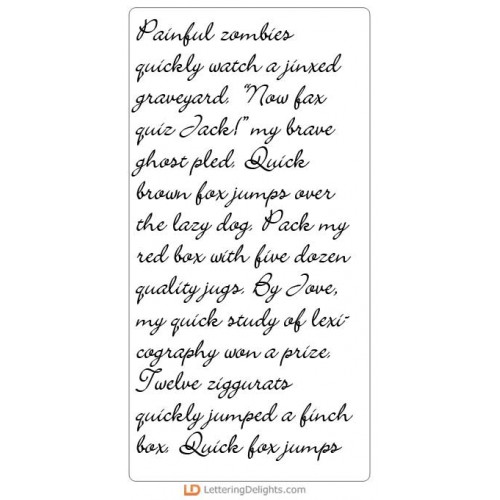 Painful zombies
quickly watch a jinxed
graveyard. "Now fax
quiz Jack!" my brave
ghost pled. Quick
brown fox jumps over
the lazy dog. Pack my
red box with five dozen
quality jugs. By Jove,
my quick study of lexi-
cography won a prize.
Twelve ziggurats
quickly jumped a finch
box. Quick fox jumps
LD LetteringDelights.com